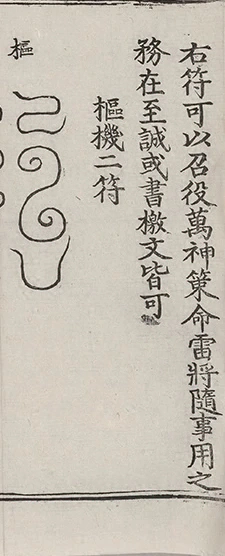 右符可以召役萬神策命雷將隨事用之
務在至誠或書檄文皆可
樞機二符
樞